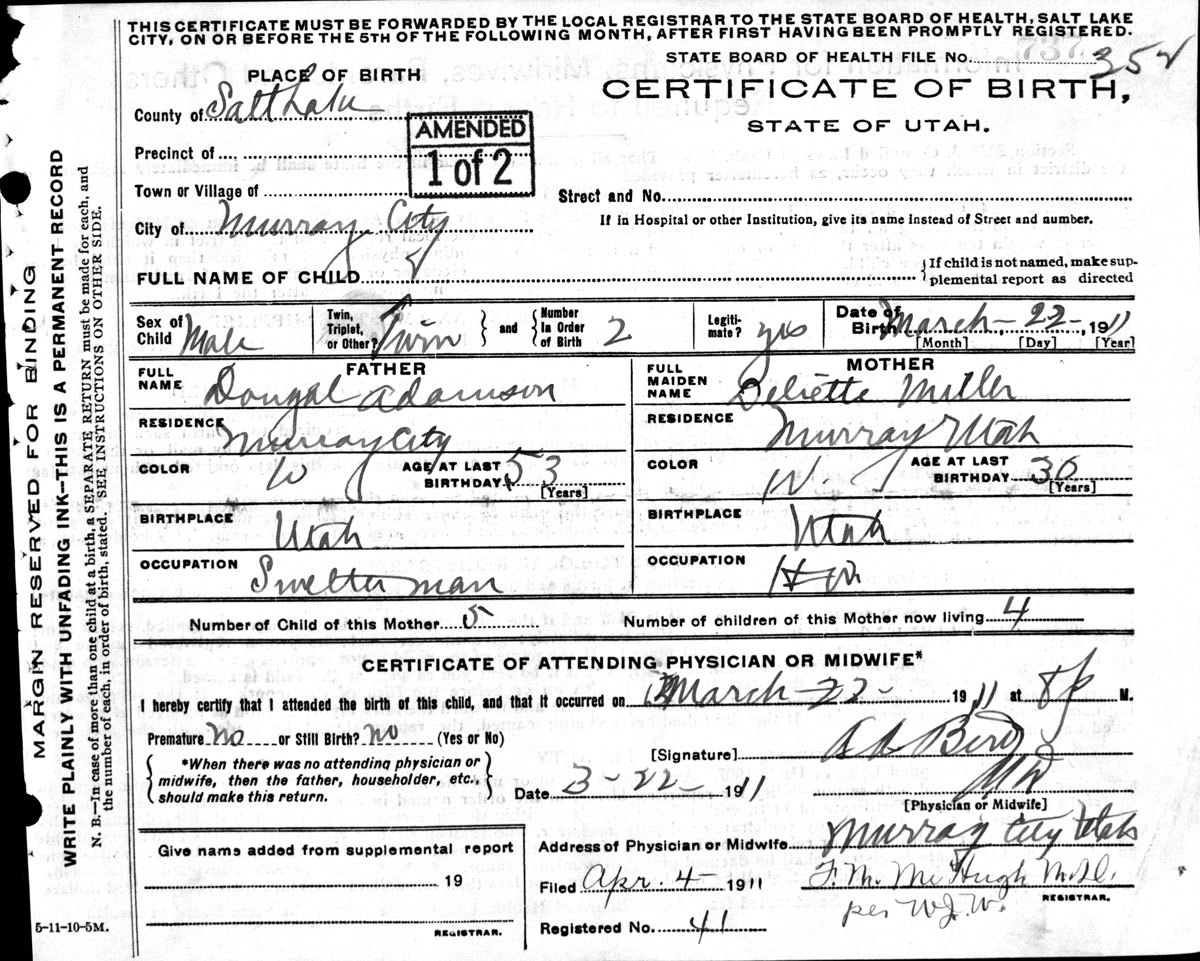 THIS CERTIFICATE MUST BE FORWARDED BY THE LOCAL REGISTRAR TO THE STATE BOARD OF HEALTH, SALT LAKE
CITY, ON OR BEFORE THE 5TH OF THE FOLLOWING MONTH, AFTER FIRST HAVING BEEN PROMPTLY REGISTERED.
STATE BOARD OF HEALTH FILE No. 352
PLACE OF BIRTH
CERTIFICATE OF BIRTH,
County of Salt Lake
STATE OF UTAH.
AMENDED
1 of 2
Precinct of
Town or Village of
Street and No.
City of Murray City
If in Hospital or other Institution, give its name instead of Street and number.
FULL NAME OF CHILD
If child is not named, make sup-
plemental report as directed
Sex of Child Male
Twin, Triplet, or Other? Twin
and
Number In Order of Birth 2
Legiti-mate? yes
Date of Birth March-22-1911
[Month] [Day] [Year]
FATHER
MOTHER
FULL NAME Dougal Adamson
FULL MAIDEN NAME Deliette Miller
RESIDENCE Murray City
RESIDENCE Murray Utah
COLOR W
AGE AT LAST BIRTHDAY 53
[Years]
COLOR W
AGE AT LAST BIRTHDAY 36
[Years]
BIRTHPLACE Utah
BIRTHPLACE Utah
OCCUPATION Smelter man
OCCUPATION H W
Number of Child of this Mother 5
Number of children of this Mother now living 4
CERTIFICATE OF ATTENDING PHYSICIAN OR MIDWIFE*
I hereby certify that I attended the birth of this child, and that it occurred on March-22-1911 at 8 P M.
Premature no or Still Birth? no (Yes or No)
[Signature] A A Bird
*When there was no attending physician or
midwife, then the father, householder, etc.,
should make this return.
Date 3-22-1911
MD
[Physician or Midwife]
Give name added from supplemental report
Address of Physician or Midwife Murray City Utah
19
Filed Apr. 4-1911
F. M. McHugh M.D.
REGISTRAR.
per W.J.W.
REGISTRAR.
Registered No. 41
5-11-10-5M.
MARGIN RESERVED FOR BINDING
WRITE PLAINLY WITH UNFADING INK--THIS IS A PERMANENT RECORD
N. B.--In case of more than one child at a birth, a SEPARATE RETURN must be made for each, and
the number of each, in order of birth, stated. SEE INSTRUCTIONS ON OTHER SIDE.